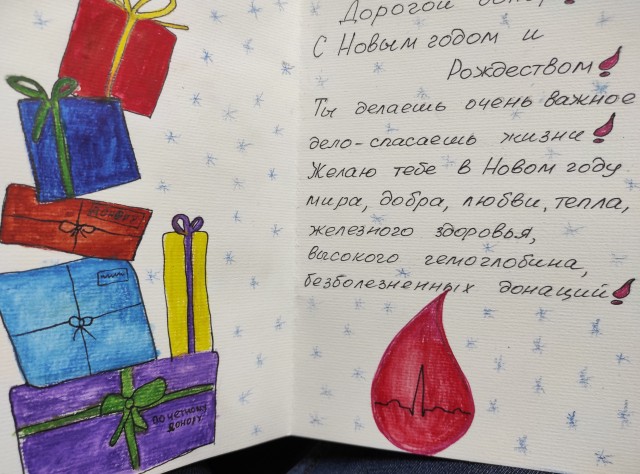 Дорогой донор!
С Новым годом и
Рождеством!
Ты делаешь очень важное
дело-спасаешь жизни!
Желаю тебе в Новом году
мира, добра, любви, тепла,
железного здоровья,
высокого гемоглобина,
безболезненных донаций!
ПОЧЕТНОМУ
ДОНОРУ